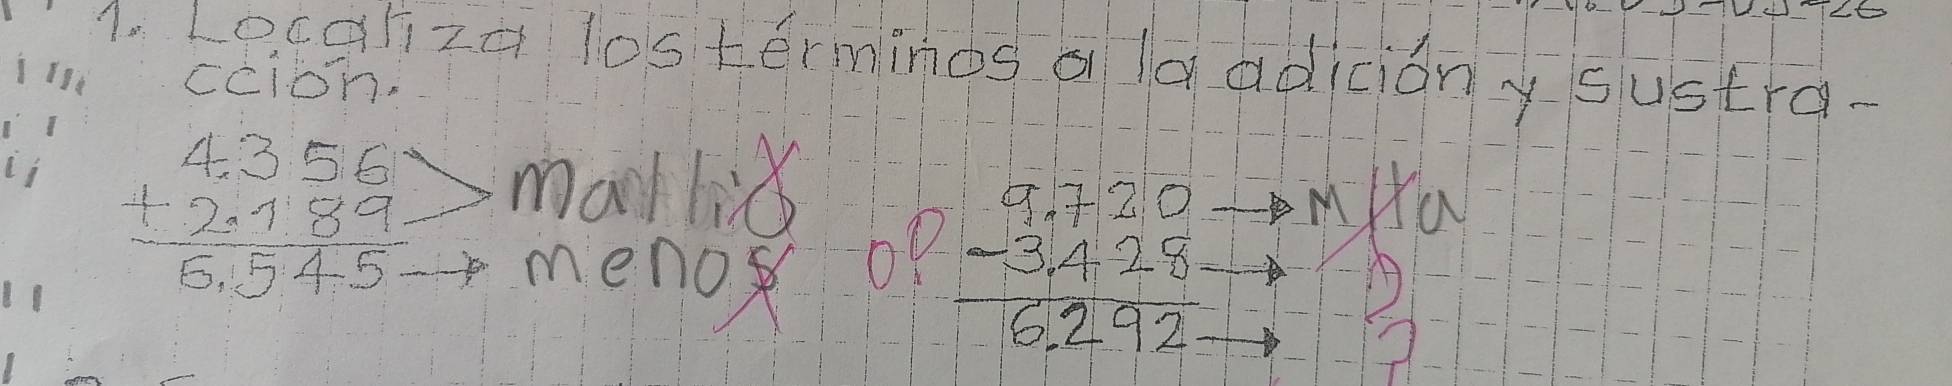 1. Localiza los términos a la adición y sustra-
cción.
4.356
+2.189
6.545 → menos
9.720 → Mta
-3.428 → ?
6.292 → ?